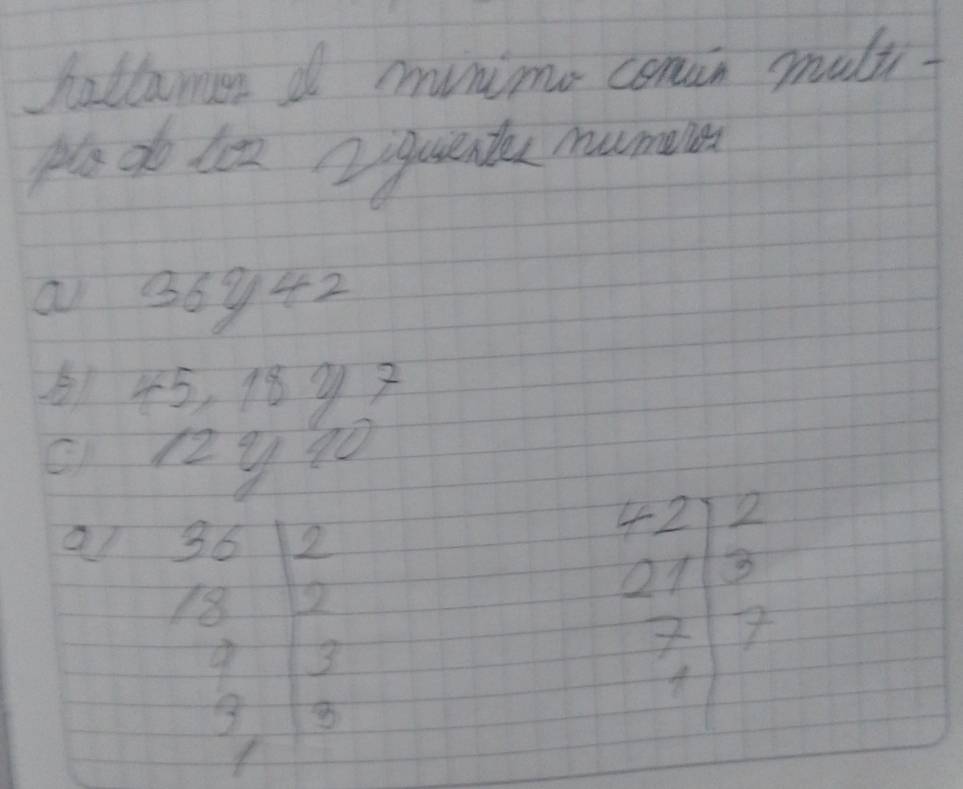 hallamos el minimo común multi-
plo de los siguientes numeros
a) 36 y 42
b) 45, 18 y 7
c) 12 y 10
a) 36 | 2 42 | 2
18 | 2 21 | 3
9 | 3 7 | 7
3 | 3 1
1